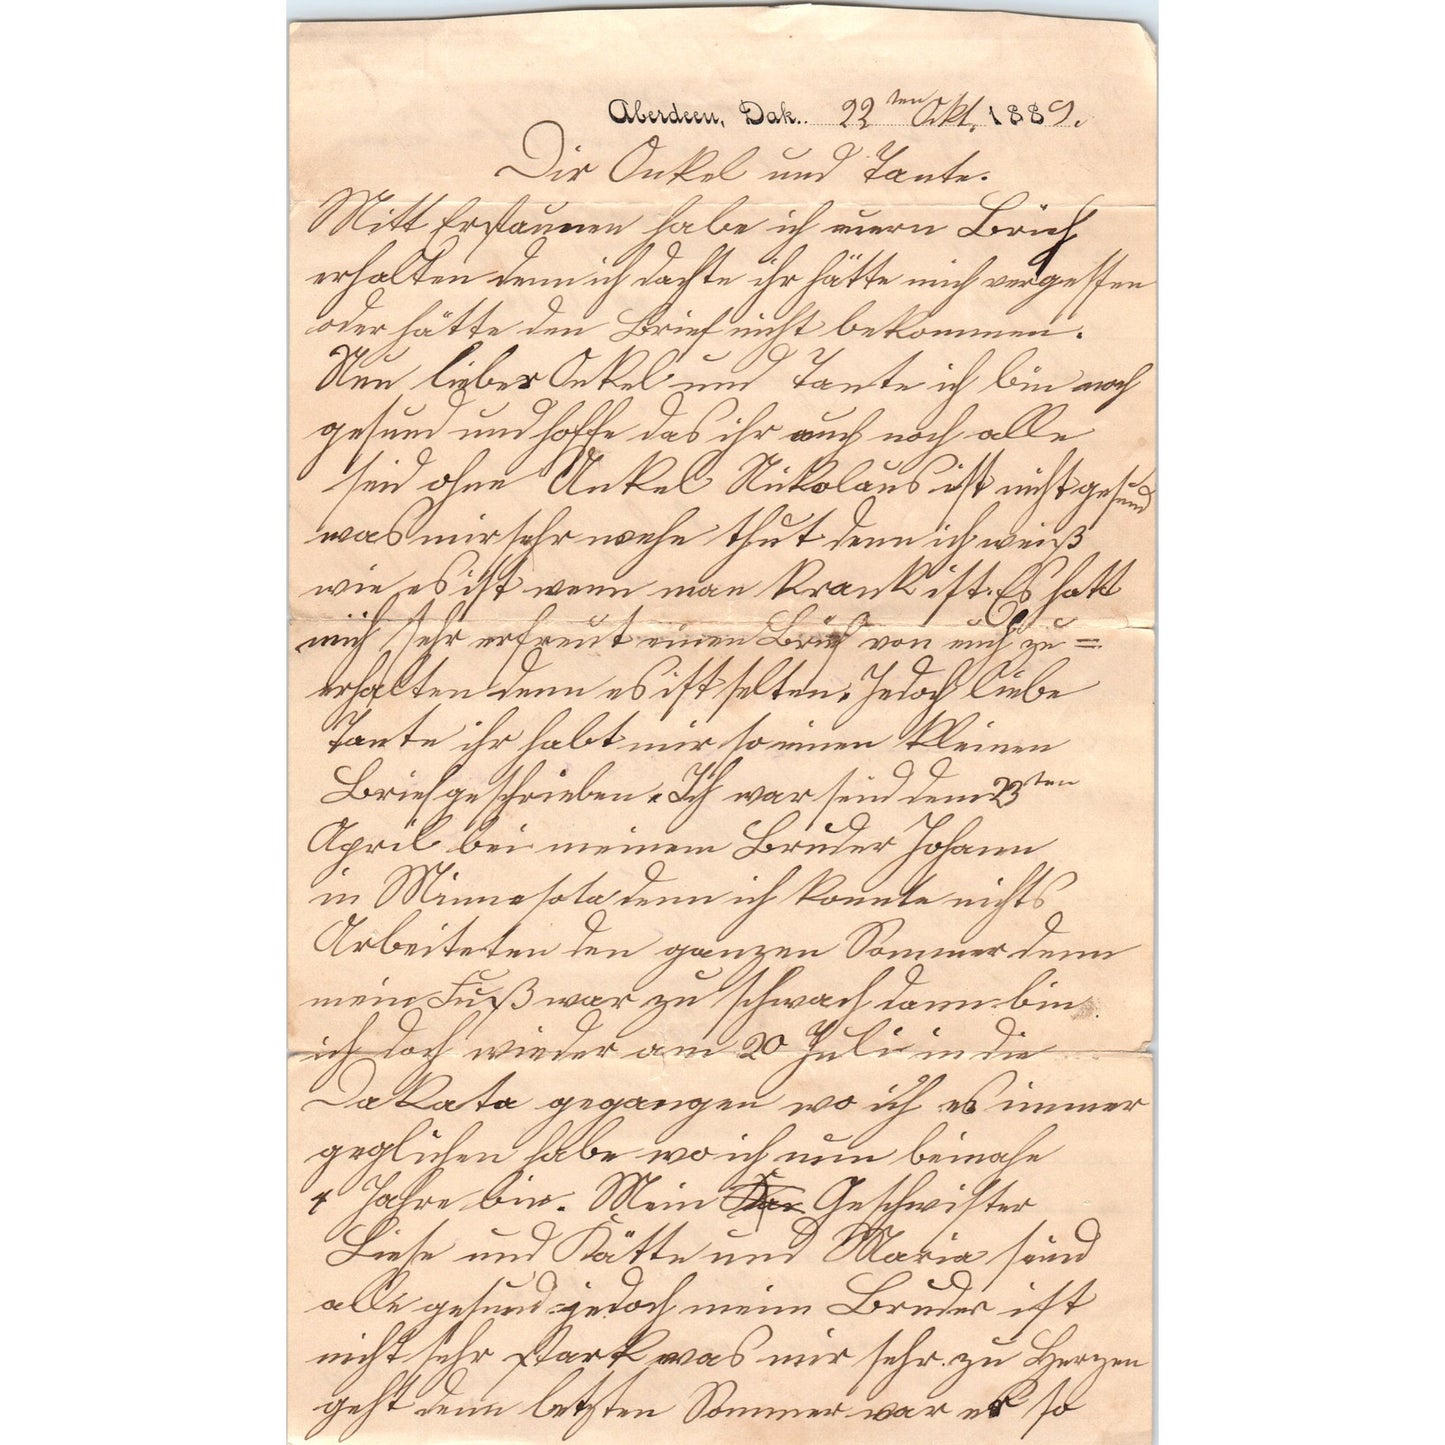 Aberdeen, Dak. 22ten Okt. 1889.
Dir Onkel und Tante.
Mitt Erstaunen habe ich euern Brief
erhalten denn ich dachte ihr hätte mich vergessen
oder hätte den Brief nicht bekommen.
Nun lieber Onkel und Tante ich bin noch
gesund und hoffe das ihr auch noch alle
seid ohne Unkel Nikolaus ist nicht gesund
was mir sehr wehe thut denn ich weiß
wie es ist wenn man krank ist. Es hatt
mich sehr erfreut einen Brief von euch zu=
erhalten denn es ist selten. Jedoch liebe
Tante ihr habt mir so einen kleinen
Brief geschrieben. Ich war seid dem 23sten
April bei meinem Bruder Johann
in Minnesota denn ich konnte nichts
Arbeiteten den ganzen Sommer denn
mein Fuß war zu schwach dann bin
ich doch wieder am 20 Juli in die
Dakata gegangen wo ich es immer
geglichen habe wo ich nun beinahe
4 Jahre bin. Mein Geschwister
Liese und Kätte und Maria sind
alle gesund jedoch meim Bruder ist
nicht sehr stark was mir sehr zu Herzen
geht denn letzten Sommer war er so